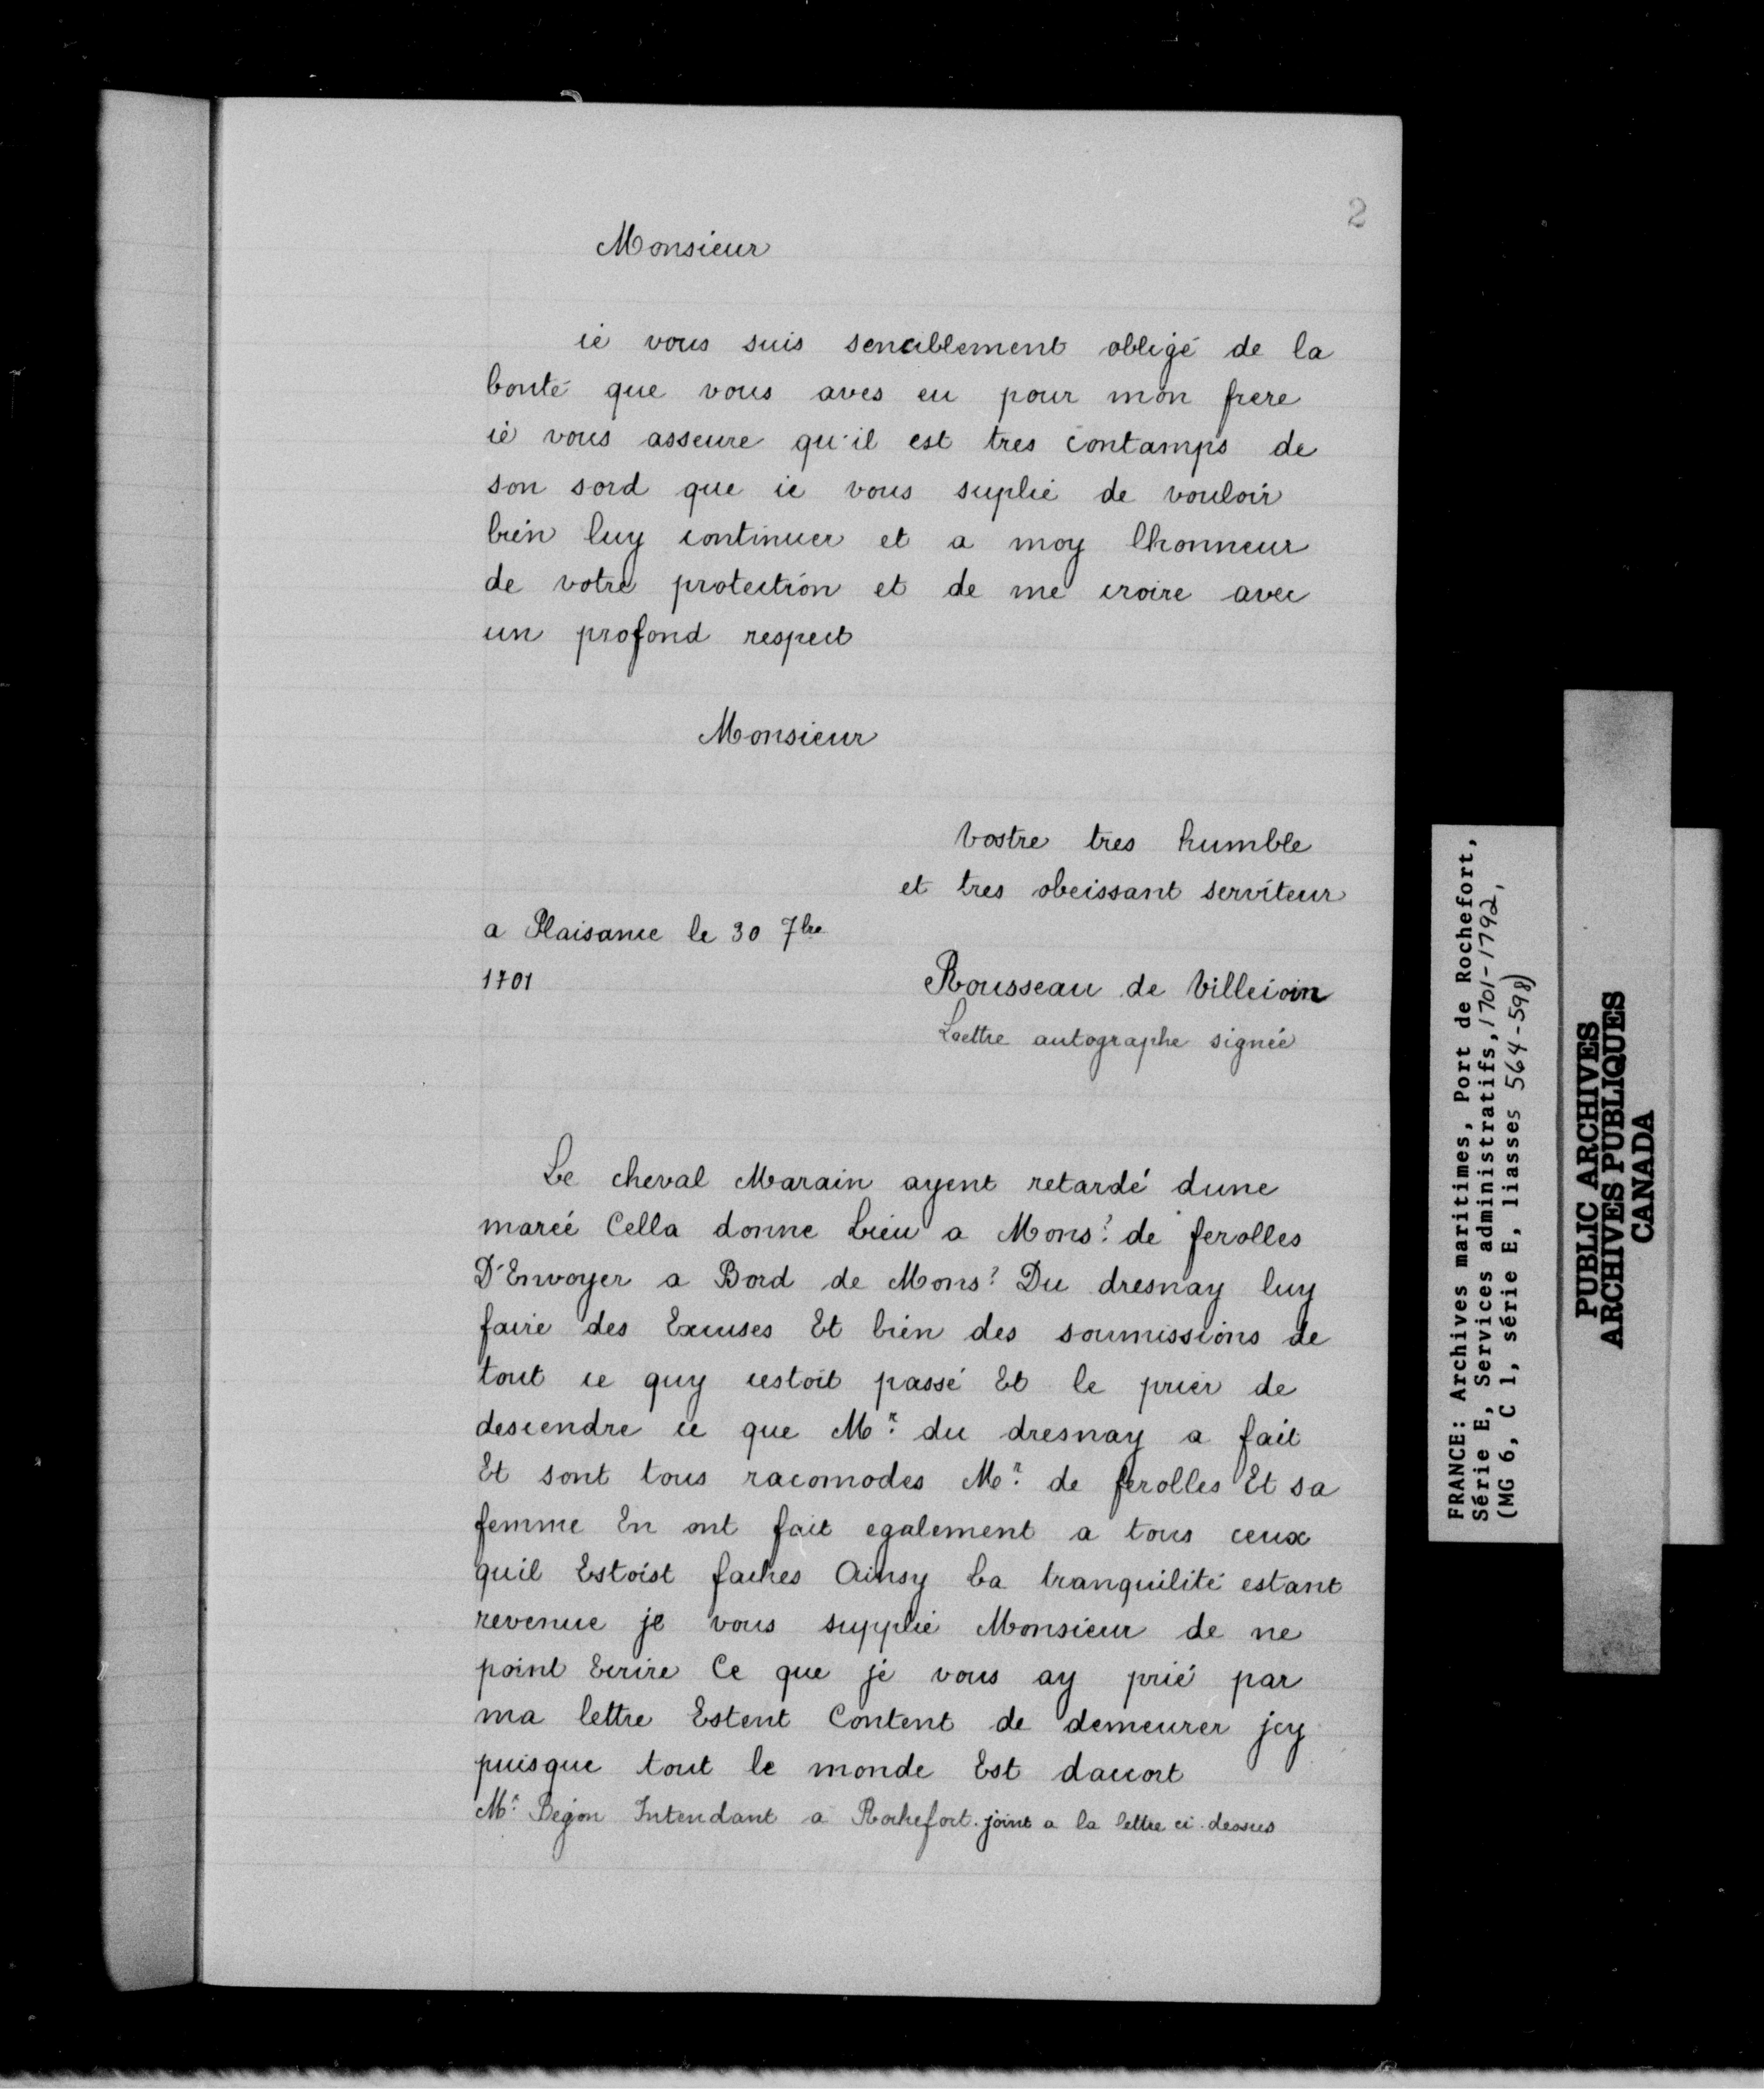 2
Monsieur
ie vous suis sensiblement obligé de la
bonté que vous aves eu pour mon frere
ie vous asseure qu'il est tres contamps de
son sord que ie vous suplie de vouloir
bien luy continuer et a moy lhonneur
de votre protection et de me croire avec
un profond respect
Monsieur
Vostre tres humble
et tres obeissant serviteur
a Plaisance le 30 7bre
1701
Rousseau de Villeioin
Lettre autographe signée
Le cheval Marain ayent retardé dune
mareé Cella donne Lieu a Monsr de ferolles
D'Envoyer a Bord de Monsr Du dresnay luy
faire des Excuses Et bien des soumissions de
tout ce quy cestoit passé Et le prier de
descendre ce que Mr du dresnay a fait
Et sont tous racomodes Mr de ferolles Et sa
femme En ont fait egalement a tous ceux
quil Estoist faches Ainsy La tranquilité estant
revenue je vous supplie Monsieur de ne
point Ecrire Ce que je vous ay prié par
ma lettre Estent Content de demeurer jcy
puisque tout le monde Est daccort
Mr Begon Intendant a Rochefort. joint a la lettre ci-dessus
FRANCE: Archives maritimes, Port de Rochefort,
Série E, Services administratifs, 1701-1792,
(MG 6, C 1, série E, liasses 564-598)
PUBLIC ARCHIVES
ARCHIVES PUBLIQUES
CANADA